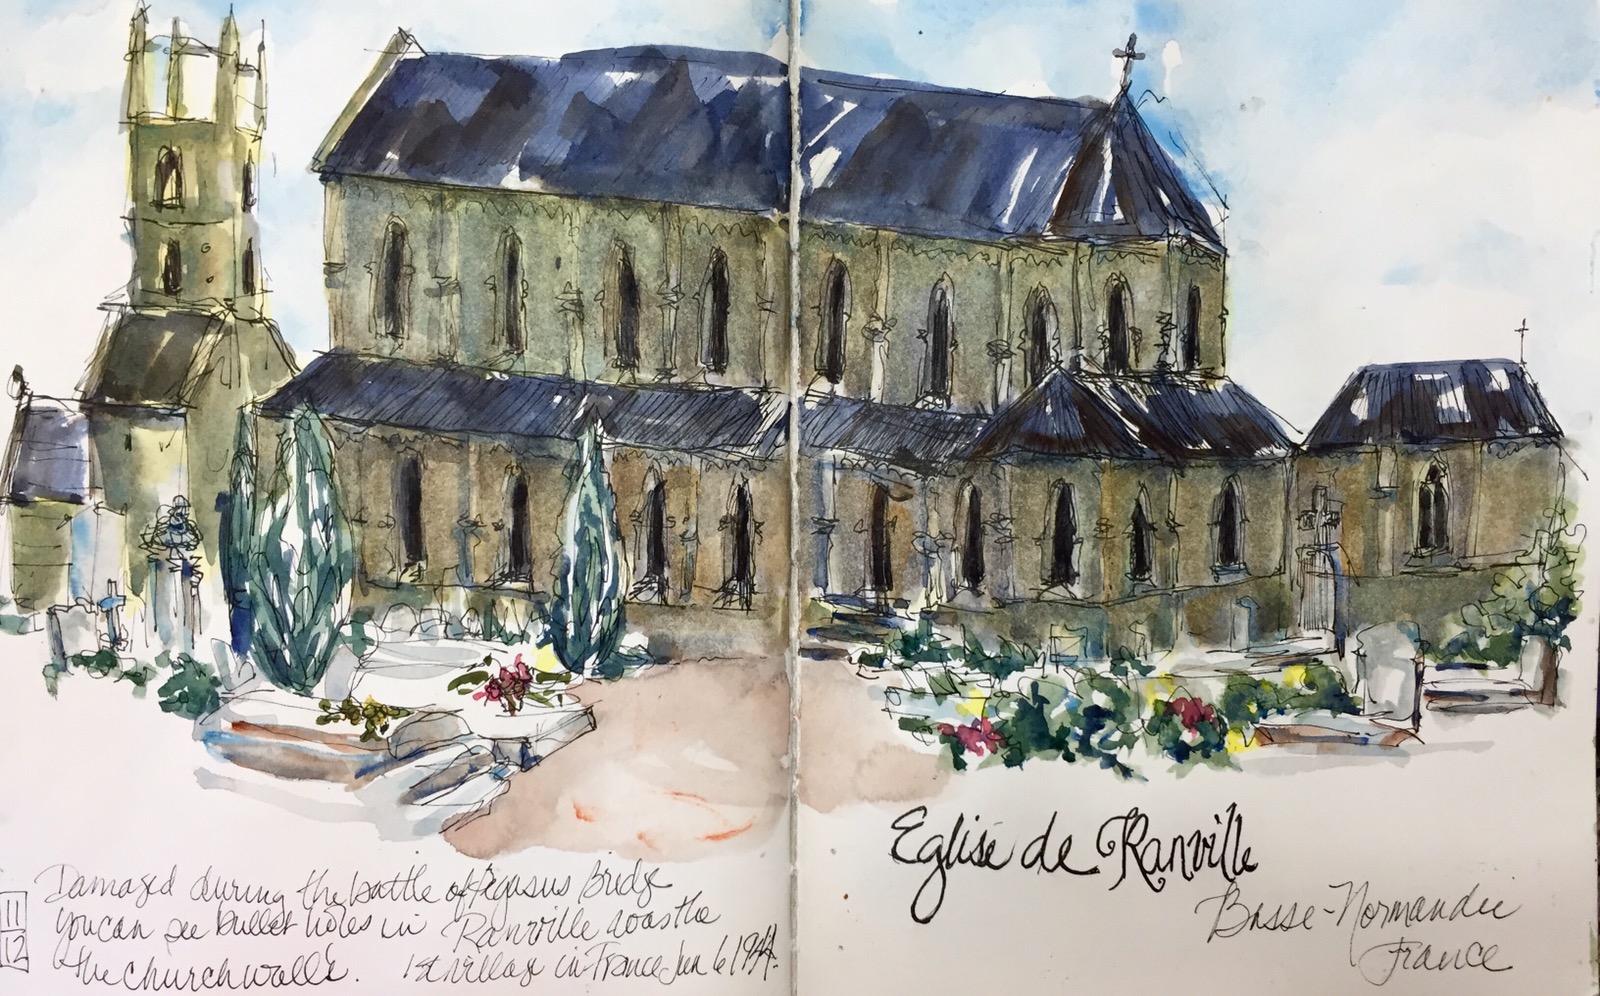 Eglise de Ranville
Basse-Normandie
France
Damaged during the battle of Pegasus Bridge
you can see bullet holes in
the church walls.
Ranville was the
1st village in France Jun 6 1944.
11
12